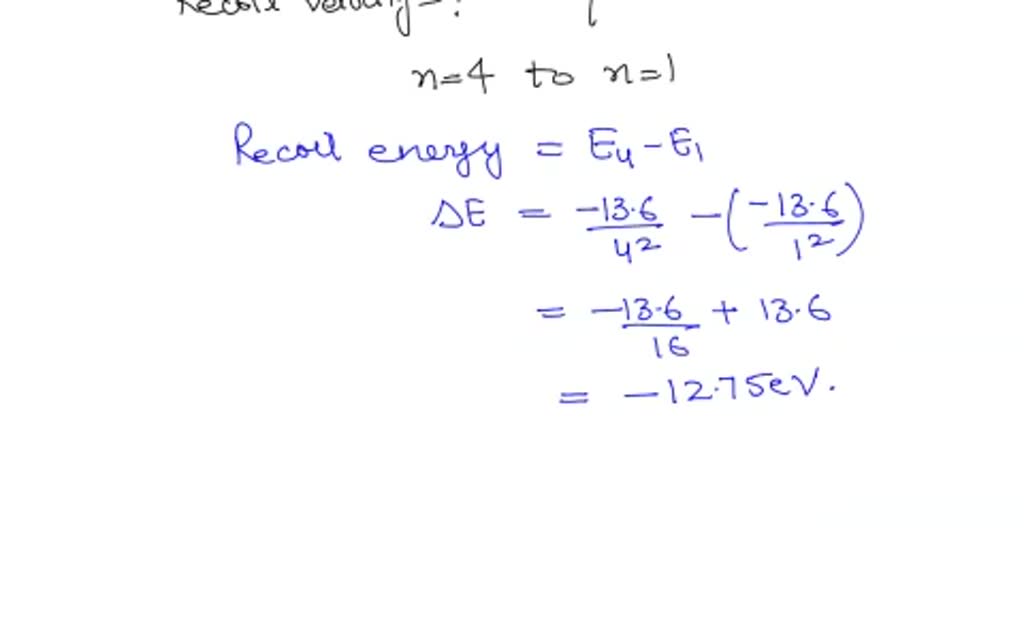 Recoil velocity = ?
n=4 to n=1
Recoil energy = E4 - E1
ΔE = -13.6/4² - (-13.6/1²)
= -13.6/16 + 13.6
= -12.75eV.